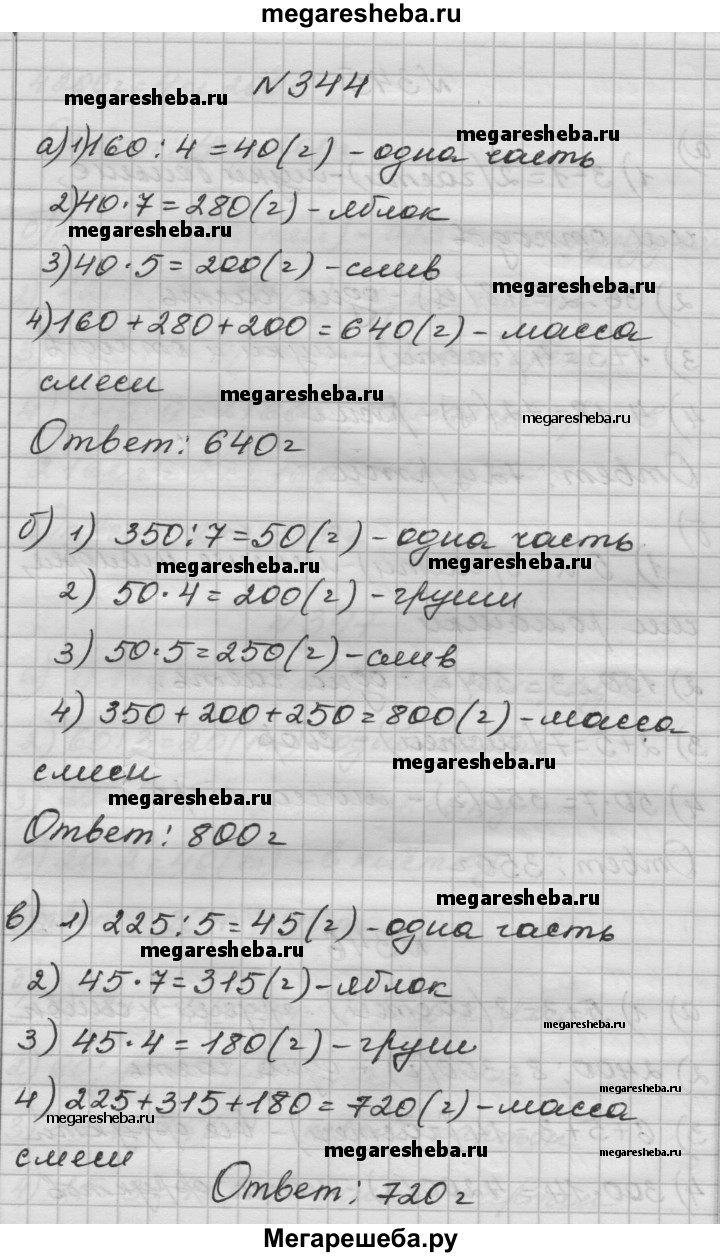 megaresheba.ru
№344
megaresheba.ru
megaresheba.ru
а) 1) 160 : 4 = 40 (г) - одна часть
2) 40 · 7 = 280 (г) - яблок
megaresheba.ru
3) 40 · 5 = 200 (г) - слив
megaresheba.ru
4) 160 + 280 + 200 = 640 (г) - масса
смеси
megaresheba.ru
megaresheba.ru
Ответ: 640 г
б) 1) 350 : 7 = 50 (г) - одна часть
megaresheba.ru
megaresheba.ru
2) 50 · 4 = 200 (г) - груши
3) 50 · 5 = 250 (г) - слив
4) 350 + 200 + 250 = 800 (г) - масса
megaresheba.ru
смеси
megaresheba.ru
Ответ: 800 г
megaresheba.ru
в) 1) 225 : 5 = 45 (г) - одна часть
megaresheba.ru
2) 45 · 7 = 315 (г) - яблок
megaresheba.ru
3) 45 · 4 = 180 (г) - груши
megaresheba.ru
4) 225 + 315 + 180 = 720 (г) - масса
megaresheba.ru
megaresheba.ru
megaresheba.ru
смеси
Ответ: 720 г
megaresheba.ru
Мегарешеба.ру